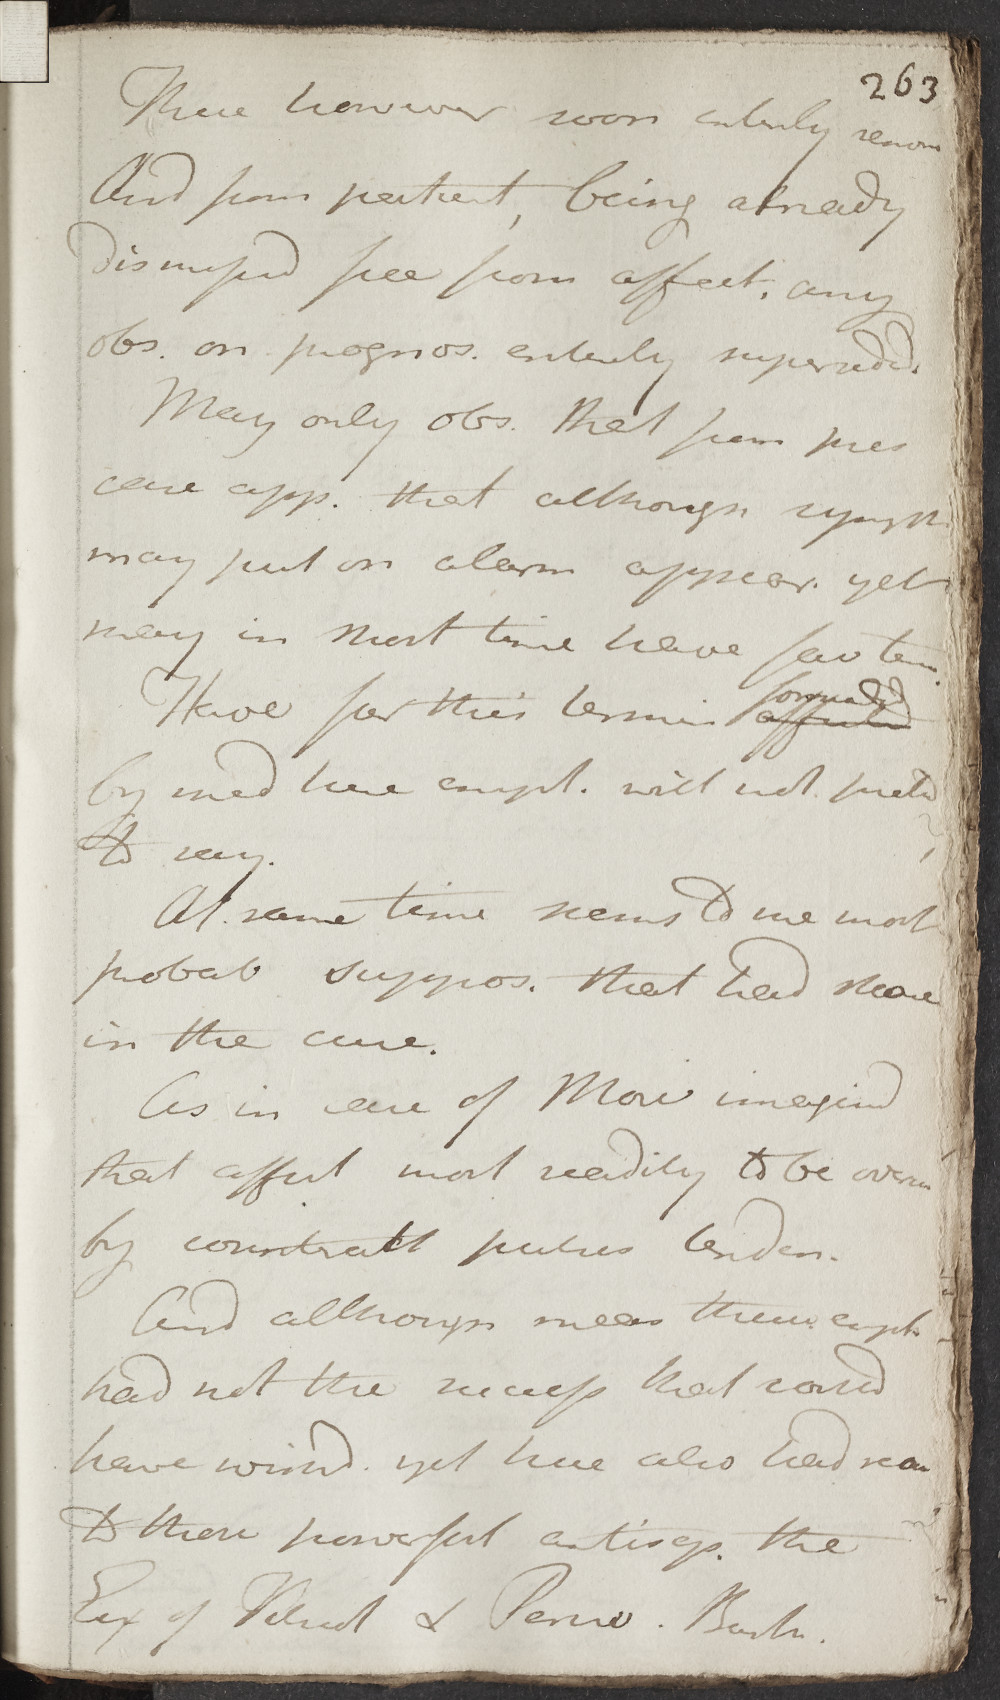 263
These however soon entirely remov
And from patient, being already
dismissed free from affect. any
obs. on prognos. entirely superseded.
May only obs. that from pres
case app. that although sympt.
may put on alarm appear. yet
may in short time have fav term.
How far this termin forwarded
by med here empl. will not pretd
to say.
At same time seems to me most
probab suppos. that had share
in the cure.
As in case of Mow imagind
that affect most readily to be overcom
by counteract putres tenden.
And although means there empl.
had not the success that could
have wishd. yet here also had recou
to those powerful antisep. the
Ex of Vitriol & Peruv. Bark.